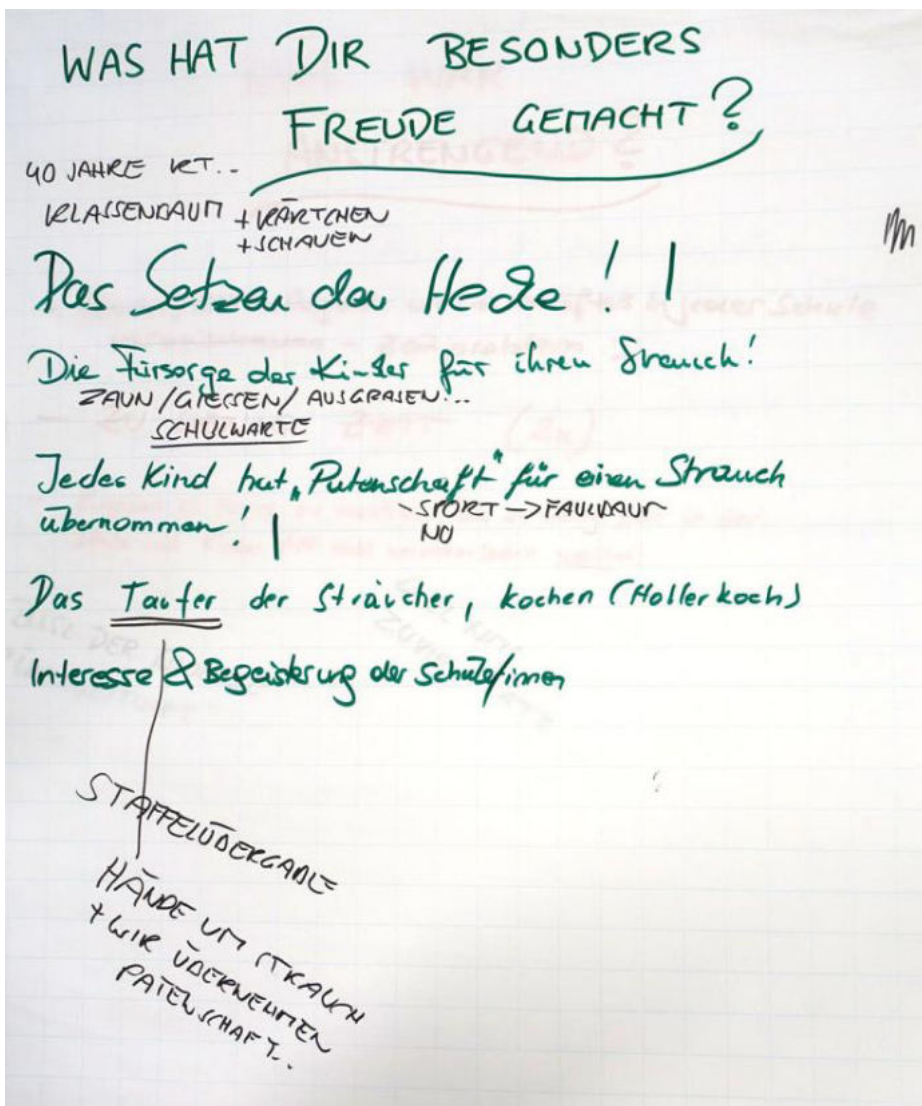 WAS HAT DIR BESONDERS
FREUDE GEMACHT?
40 JAHRE KT...
KLASSENBAUM + KÄRTCHEN
+ SCHAUEN
Das Setzen der Hecke! !
Die Fürsorge der Kinder für ihren Strauch!
ZAUN / GIESSEN / AUSGRASEN...
SCHULWARTE
Jedes Kind hat „Patenschaft" für einen Strauch
- SPORT -> FAULBAUM
übernommen! !
NÖ
Das Taufen der Sträucher, kochen (Hollerkoch)
Interesse & Begeisterung der Schüler/innen
STAFFELÜBERGABE
HÄNDE UM STRAUCH
+ WIR ÜBERNEHMEN
PATENSCHAFT...